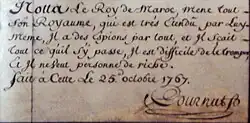 Notta Le Roy de Maroc, mene tout
son Royaume, qui est très Etendu, par Luy
Meme, Il a des Espions par tout, et Il scait
tout ce quil s'y passe, Il est difficile de le tromper
Et Il ne Veut personne de riche.
fait à Cette Le 25e octobre 1767.